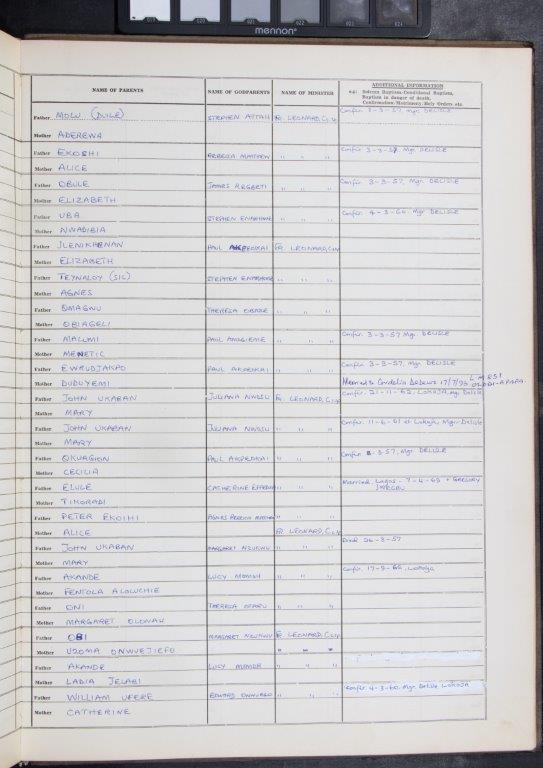 mennon
NAME OF PARENTS NAME OF GODPARENTS NAME OF MINISTER ADDITIONAL INFORMATION
e.g.: Solemn Baptism-Conditional Baptism,
Baptism in danger of death,
Confirmation/Matrimony, Holy Orders etc.
Father MOLU (DUILE) STEPHEN ATTAH Fr. LEONARD, C.S.Sp Confir. 3-3-57, Mgr. DELISLE
Mother ADEREWA
Father EKOSHI REBECCA MATTHEW " " " Confir 3-3-57. Mgr. DELISLE
Mother ALICE
Father OBULE JAMES " " " Confir. 3-3-57, Mgr. DELISLE
Mother ELIZABETH
Father UBA STEPHEN " " " Confir. 4-3-60. Mgr. DELISLE
Mother NWADIBIA
Father PAUL Fr. LEONARD, C.S.Sp
Mother ELIZABETH
Father TEYNALOY (SIC) STEPHEN " " "
Mother AGNES
Father OMAGWU THERESA " " "
Mother OBIAGELI
Father MALLIMI PAUL " " " Confir. 3-3-57 Mgr. DELISLE
Mother MENETIC
Father EWRUDJAKPO PAUL " " " Confir. 3-3-57. Mgr. DELISLE
Mother DUDUYEMI Married to Cordelia 17/7/93
Father JOHN UKABAN JULIANA NWOSU Fr. LEONARD, C.S.Sp Confir. 21-11-62, LOKOJA, Mgr. Delisle
Mother MARY
Father JOHN UKABAN JULIANA NWOSU " " " Confir. 11-6-61 at Lokoja, Mgr. Delisle
Mother MARY
Father OKUAGION PAUL " " Confir. 3-57, Mgr. DELISLE
Mother CECILIA
Father ELULE CATHERINE " " Married Lagos - 7-4-69 + GREGORY
Mother TIMORADI
Father PETER EKOIHI AGNES " "
Mother ALICE Fr. LEONARD, C.S.Sp
Father JOHN UKABAN MARGARET NZUKWU " " " Died 26-3-57
Mother MARY
Father AKANDE LUCY MOMOH " " " Confir. 17-9-66, Lokoja
Mother FENTOLA ALOLUCHIE
Father ONI THERESA " " "
Mother MARGARET OLONAH
Father OBI MARGARET NZUKWU Fr. LEONARD, C.S.Sp
Mother UZOMA ONWUEJIEFO " " "
Father AKANDE LUCY MOMOH " " "
Mother LADIA JELABI
Father WILLIAM UFERE EDWARD " " " Confir 4-3-60. Mgr. Delisle LOKOJA
Mother CATHERINE